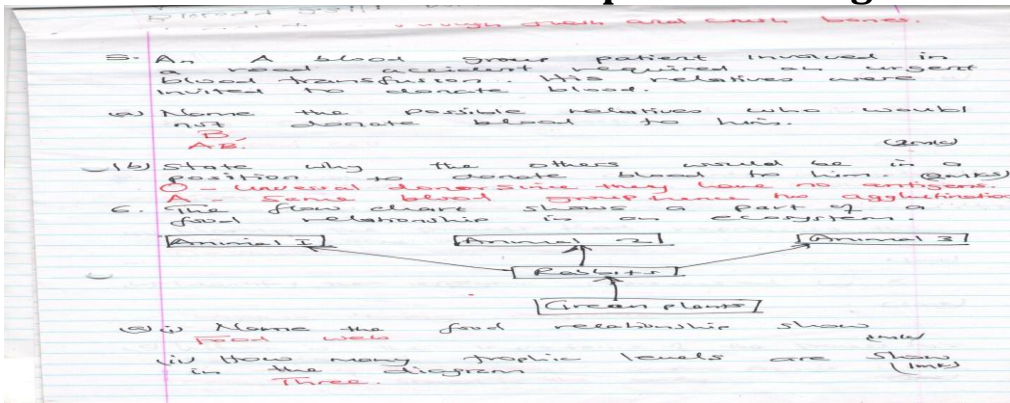 through flesh and crush bones.
5. An A blood group patient involved in
a road accident required an urgent
blood transfusion. His relatives were
invited to donate blood.
(a) Name the possible relatives who would
not donate blood to him.
B
AB.
(2mks)
(b) State why the others would be in a
position to donate blood to him. (2mks)
O - universal donor since they have no antigens.
A - Same blood group hence no agglutination
6. The flow chart shows a part of a
food relationship in an ecosystem.
Animal 1 Animal 2 Animal 3
Rabbits
Green plants
(a) (i) Name the food relationship show
food web
(1mk)
(ii) How many trophic levels are show
in the diagram (1mk)
Three.